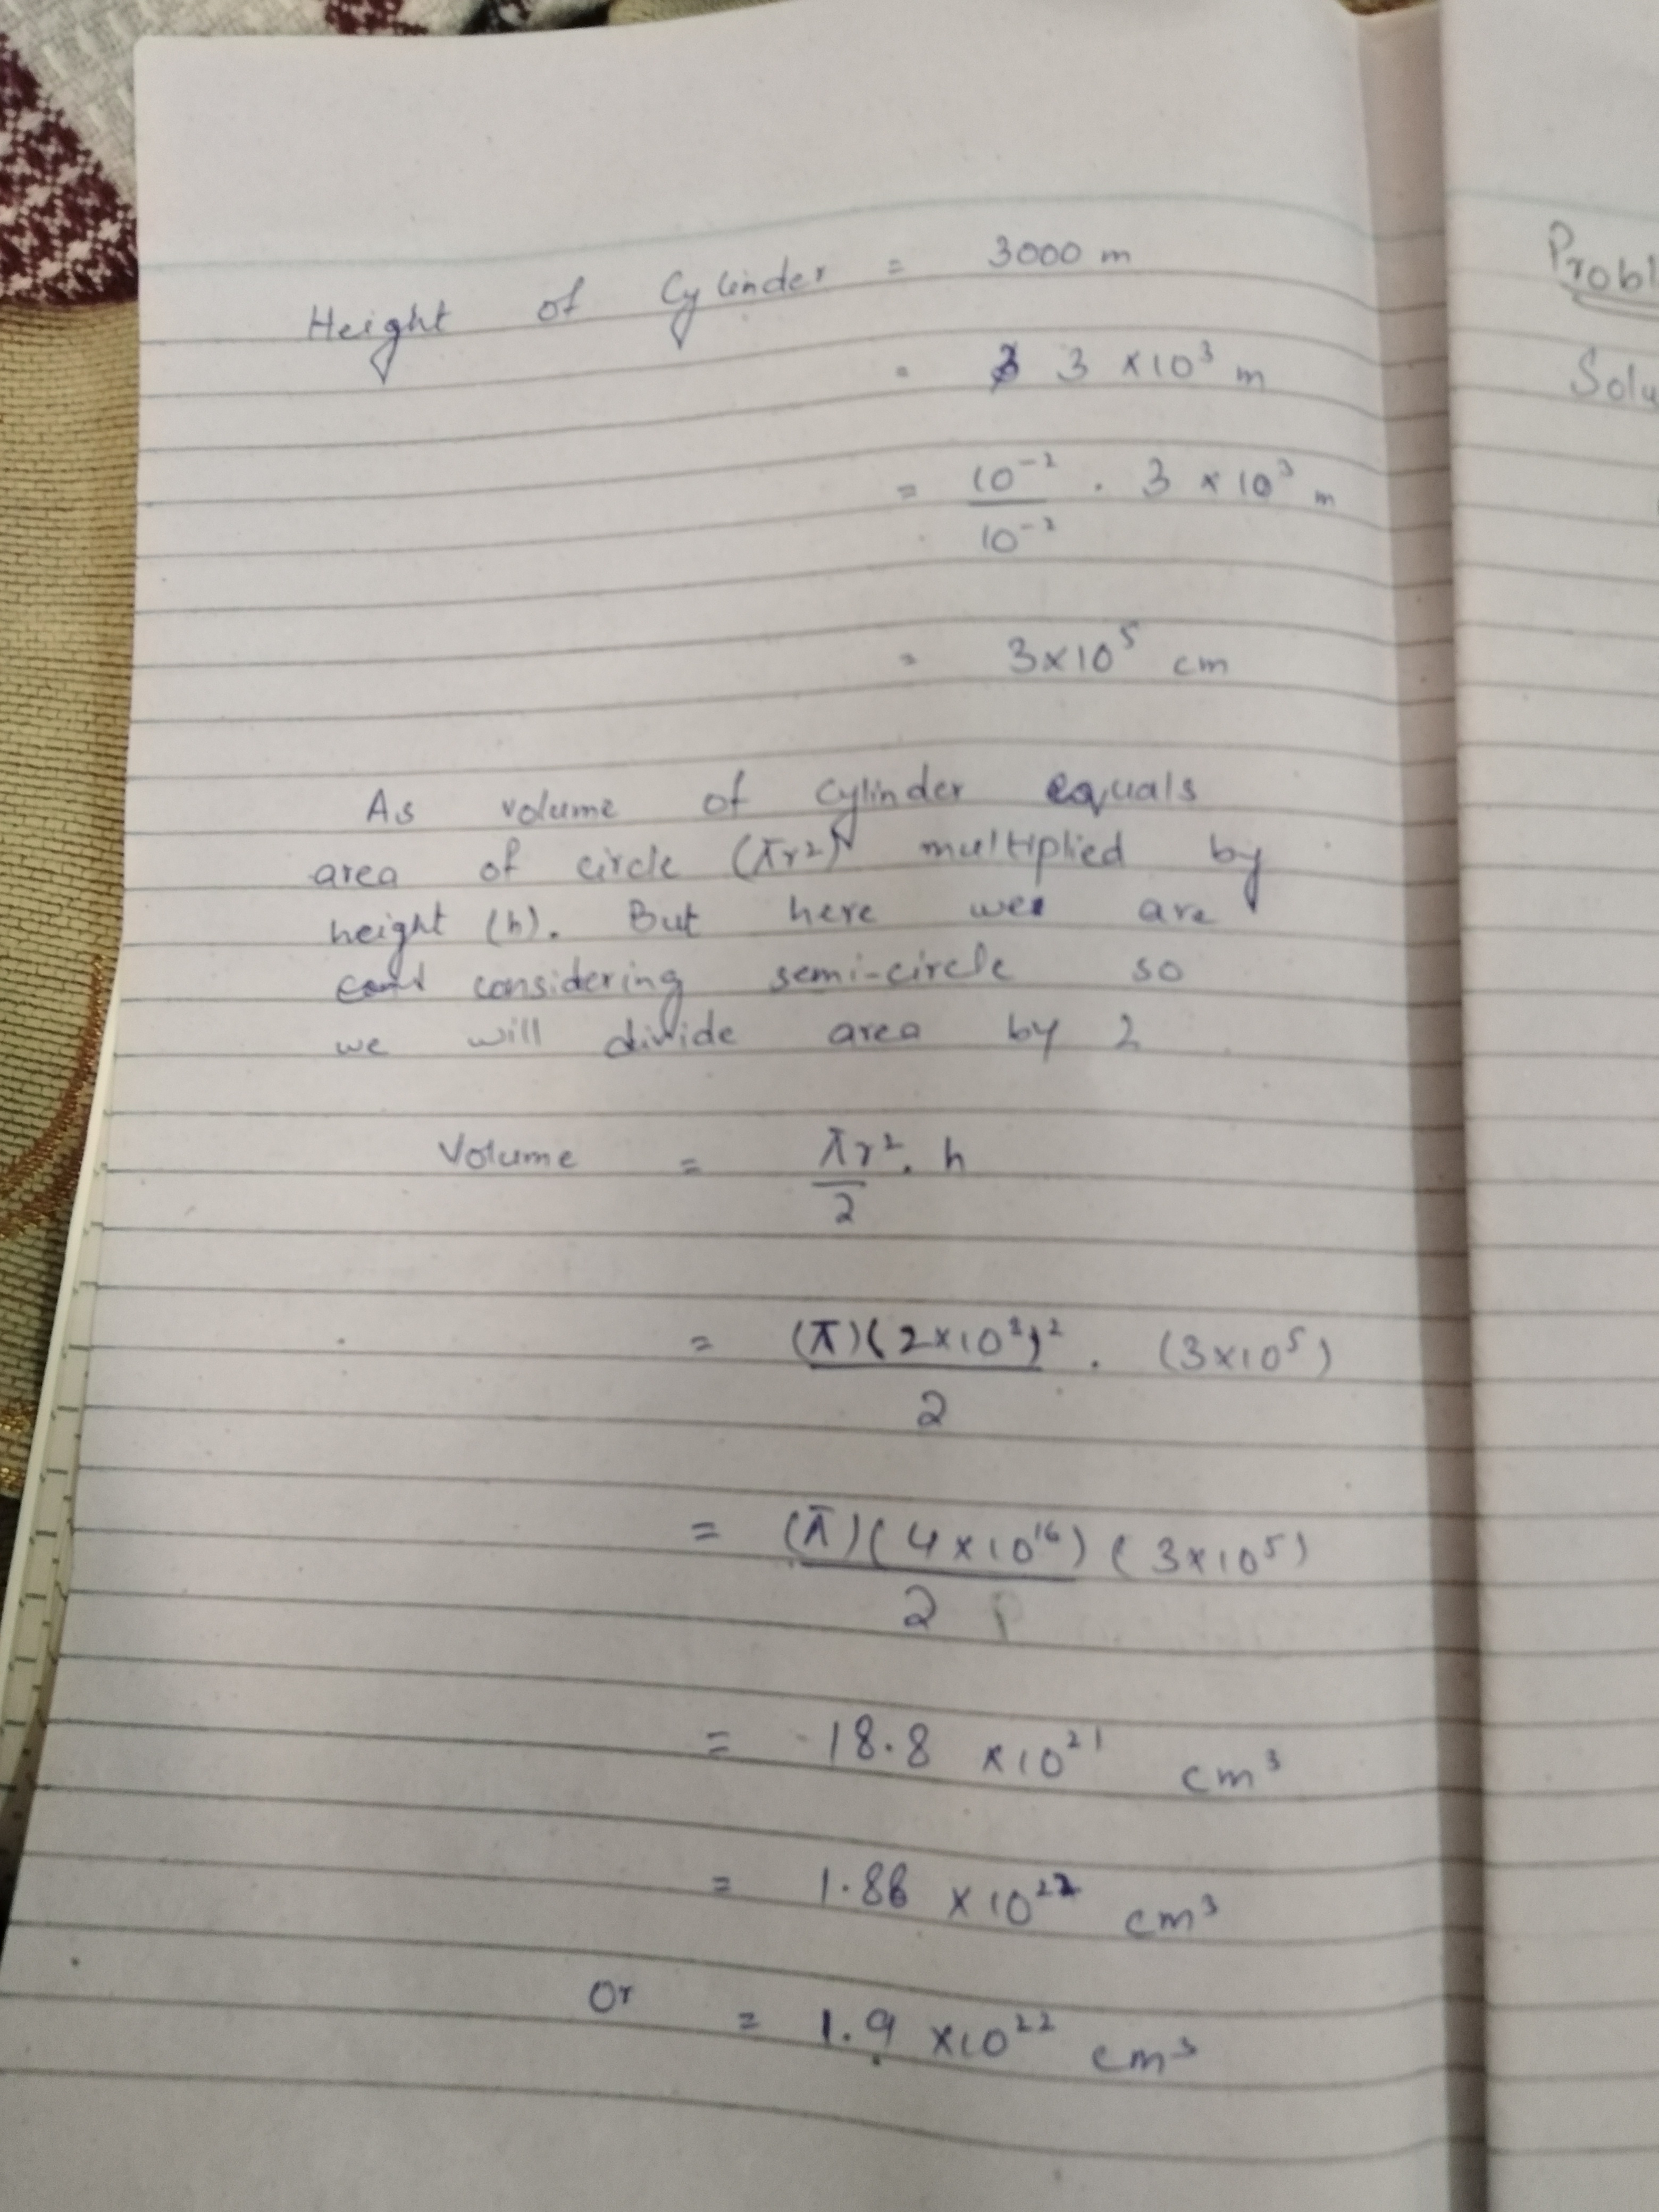 Height of Cylinder = 3000 m
= 3 × 10³ m
= 10⁻² / 10⁻² . 3 × 10³ m
= 3×10⁵ cm
As volume of cylinder equals
area of circle (πr²) multiplied by
height (h). But here we are
considering semi-circle so
we will divide area by 2
Volume = πr² / 2 . h
= (π)(2×10⁸)² / 2 . (3×10⁵)
= (π)(4×10¹⁶) / 2 (3×10⁵)
= 18.8 ×10²¹ cm³
= 1.88 ×10²² cm³
Or = 1.9 ×10²² cm³
Probl
Solu